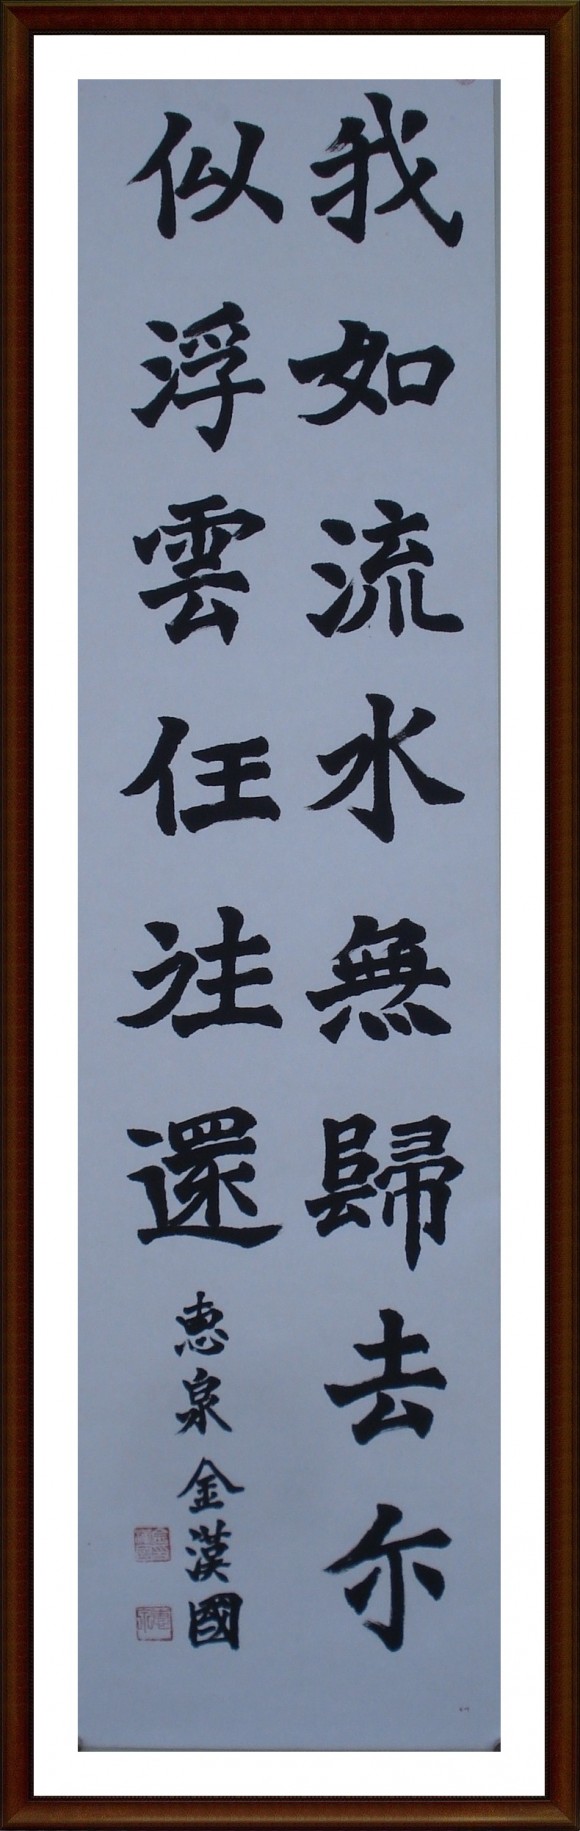 我如流水無歸去尓
似浮雲任往還
惠泉金漢國